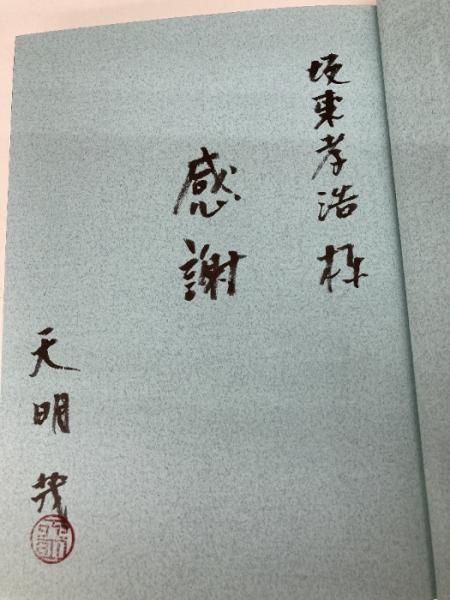 坂東孝浩様
感謝
天明茂